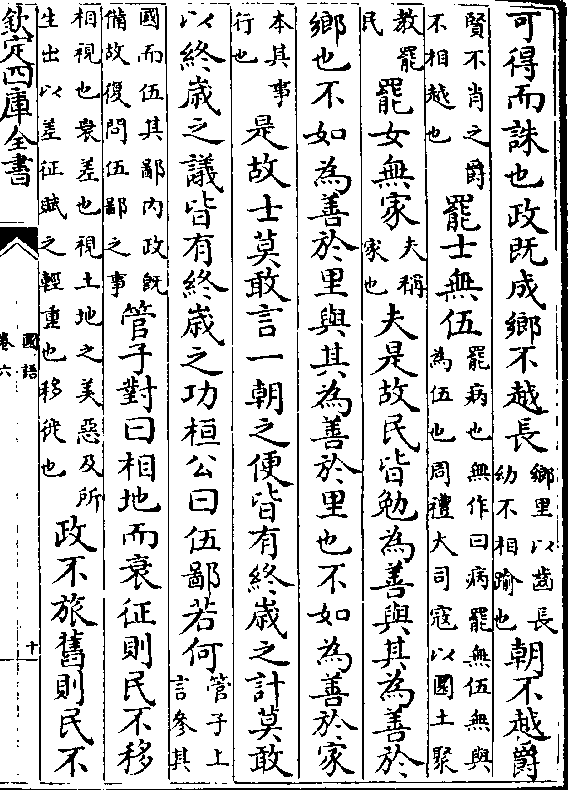 可得而誅也政既成鄉不越長鄉里以齒長幼不相踰也朝不越爵
賢不肖之爵不相越也罷士無伍罷病也無作曰病罷無伍無與為伍也周禮大司寇以圜土聚
教罷民罷女無家夫稱家也夫是故民皆勉為善與其為善於
鄉也不如為善於里與其為善於里也不如為善於家
本其事行也是故士莫敢言一朝之便皆有終歲之計莫敢
以終歲之議皆有終歲之功桓公曰伍鄙若何管子上言參其
國而伍其鄙內政既備故復問伍鄙之事管子對曰相地而衰征則民不移
相視也衰差也視土地之美惡及所生出以差征賦之輕重也移徙也政不旅舊則民不
欽定四庫全書
國語
卷六
十